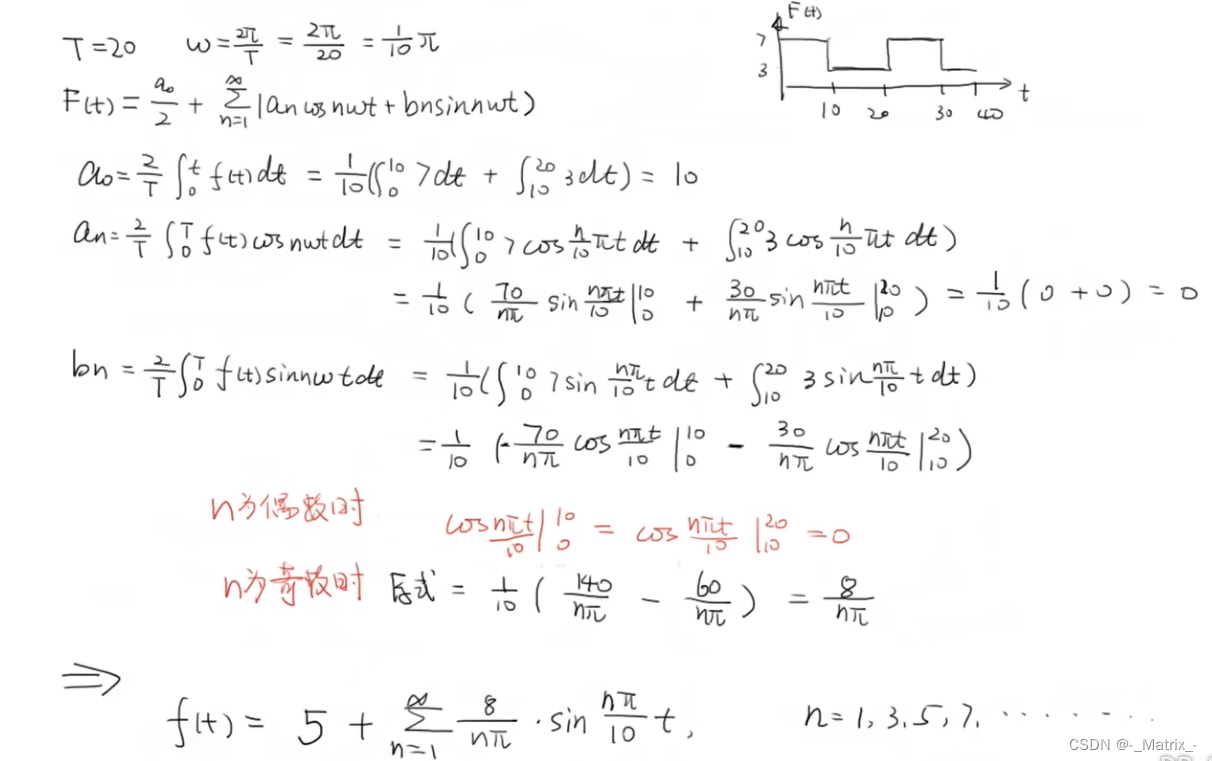 T=20 ω=2π/T = 2π/20 = 1/10 π
F(t)
7
3
10 20 30 40 t
F(t) = a₀/2 + ∑_{n=1}^{∞} (an cos nωt + bn sin nωt)
a₀ = 2/T ∫₀^t f(t)dt = 1/10 (∫₀^10 7dt + ∫₁₀^20 3dt) = 10
an = 2/T ∫₀^T f(t) cos nωt dt = 1/10 (∫₀^10 7 cos n/10 πt dt + ∫₁₀^20 3 cos n/10 πt dt)
= 1/10 ( 70/nπ sin nπt/10 |₀^10 + 30/nπ sin nπt/10 |₁₀^20 ) = 1/10 (0 + 0) = 0
bn = 2/T ∫₀^T f(t) sin nωt dt = 1/10 (∫₀^10 7 sin nπ/10 t dt + ∫₁₀^20 3 sin nπ/10 t dt)
= 1/10 (-70/nπ cos nπt/10 |₀^10 - 30/nπ cos nπt/10 |₁₀^20)
n为偶数时 cos nπt/10 |₀^10 = cos nπt/10 |₁₀^20 = 0
n为奇数时 原式 = 1/10 ( 140/nπ - 60/nπ ) = 8/nπ
⇒
f(t) = 5 + ∑_{n=1}^{∞} 8/nπ · sin nπ/10 t, n=1, 3, 5, 7, ········
CSDN @-_Matrix_-